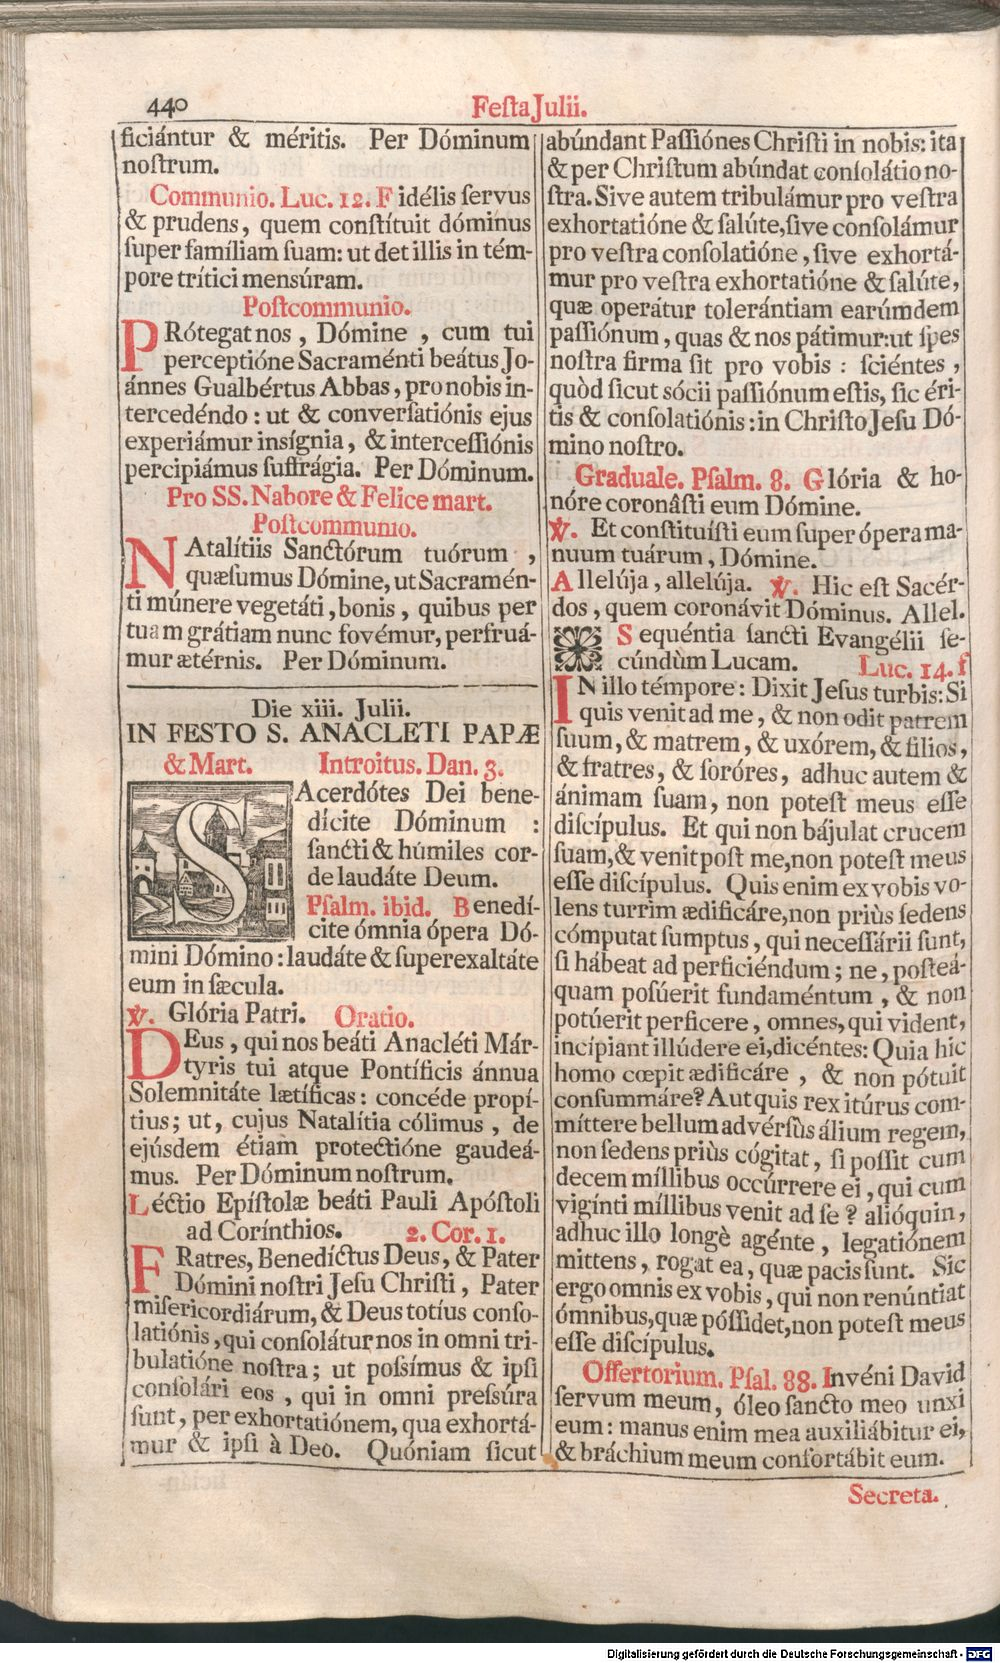 440
Feſta Julii.
ficiántur & méritis. Per Dóminum
noſtrum.
Communio. Luc. 12. F idélis ſervus
& prudens, quem conſtítuit dóminus
ſuper famíliam ſuam: ut det illis in tém-
pore trítici menſúram.
Poſtcommunio.
PRótegat nos, Dómine, cum tui
perceptióne Sacraménti beátus Jo-
ánnes Gualbértus Abbas, pro nobis in-
tercedéndo: ut & converſatiónis ejus
experiámur inſígnia, & interceſſiónis
percipiámus ſuffrágia. Per Dóminum.
Pro SS. Nabore & Felice mart.
Poſtcommunio.
NAtalítiis Sanctórum tuórum,
quæſumus Dómine, ut Sacramén-
ti múnere vegetáti, bonis, quibus per
tuam grátiam nunc fovémur, perfruá-
mur ætérnis. Per Dóminum.
Die xiii. Julii.
IN FESTO S. ANACLETI PAPÆ
& Mart. Introitus. Dan. 3.
SAcerdótes Dei bene-
dícite Dóminum:
ſancti & húmiles cor-
de laudáte Deum.
Pſalm. ibid. Benedí-
cite ómnia ópera Dó-
mini Dómino: laudáte & ſuperexaltáte
eum in ſæcula.
℣. Glória Patri. Oratio.
DEus, qui nos beáti Anacléti Már-
tyris tui atque Pontíficis ánnua
Solemnitáte lætíficas: concéde propí-
tius; ut, cujus Natalítia cólimus, de
ejúsdem étiam protectióne gaudeá-
mus. Per Dóminum noſtrum.
Léctio Epíſtolæ beáti Pauli Apóſtoli
ad Corínthios. 2. Cor. 1.
FRatres, Benedíctus Deus, & Pater
Dómini noſtri Jeſu Chriſti, Pater
miſericordiárum, & Deus totíus conſo-
latiónis, qui conſolátur nos in omni tri-
bulatióne noſtra; ut poſsímus & ipſi
conſolári eos, qui in omni preſsúra
ſunt, per exhortatiónem, qua exhortá-
mur & ipſi à Deo. Quóniam ſicut
abúndant Paſſiónes Chriſti in nobis: ita
& per Chriſtum abúndat conſolátio no-
ſtra. Sive autem tribulámur pro veſtra
exhortatióne & ſalúte, ſive conſolámur
pro veſtra conſolatióne, ſive exhortá-
mur pro veſtra exhortatióne & ſalúte,
quæ operátur tolerántiam earúmdem
paſſiónum, quas & nos pátimur: ut ſpes
noſtra firma ſit pro vobis: ſciéntes,
quòd ſicut sócii paſſiónum eſtis, ſic éri-
tis & conſolatiónis: in Chriſto Jeſu Dó-
mino noſtro.
Graduale. Pſalm. 8. Glória & ho-
nóre coronâſti eum Dómine.
℣. Et conſtituíſti eum ſuper ópera ma-
nuum tuárum, Dómine.
Allelúja, allelúja. ℣. Hic eſt Sacér-
dos, quem coronávit Dóminus. Allel.
Sequéntia ſancti Evangélii ſe-
cúndùm Lucam. Luc. 14. f
IN illo témpore: Dixit Jeſus turbis: Si
quis venit ad me, & non odit patrem
ſuum, & matrem, & uxórem, & filios,
& fratres, & ſoróres, adhuc autem &
ánimam ſuam, non poteſt meus eſſe
diſcípulus. Et qui non bájulat crucem
ſuam, & venit poſt me, non poteſt meus
eſſe diſcípulus. Quis enim ex vobis vo-
lens turrim ædificáre, non priùs ſedens
cómputat ſumptus, qui neceſſárii ſunt,
ſi hábeat ad perficiéndum; ne, poſteá-
quam poſúerit fundaméntum, & non
potúerit perficere, omnes, qui vident,
incípiant illúdere ei, dicéntes: Quia hic
homo cœpit ædificáre, & non pótuit
conſummáre? Aut quis rex itúrus com-
míttere bellum advérſùs álium regem,
non ſedens priùs cógitat, ſi poſſit cum
decem míllibus occúrrere ei, qui cum
vigínti míllibus venit ad ſe? alióquin,
adhuc illo longè agénte, legatiónem
mittens, rogat ea, quæ pacis ſunt. Sic
ergo omnis ex vobis, qui non renúntiat
ómnibus, quæ póſſidet, non poteſt meus
eſſe diſcípulus.
Offertorium. Pſal. 88. Invéni David
ſervum meum, óleo ſancto meo unxi
eum: manus enim mea auxiliábitur ei,
& bráchium meum confortábit eum.
Secreta.
Digitalisierung gefördert durch die Deutsche Forschungsgemeinschaft - DFG